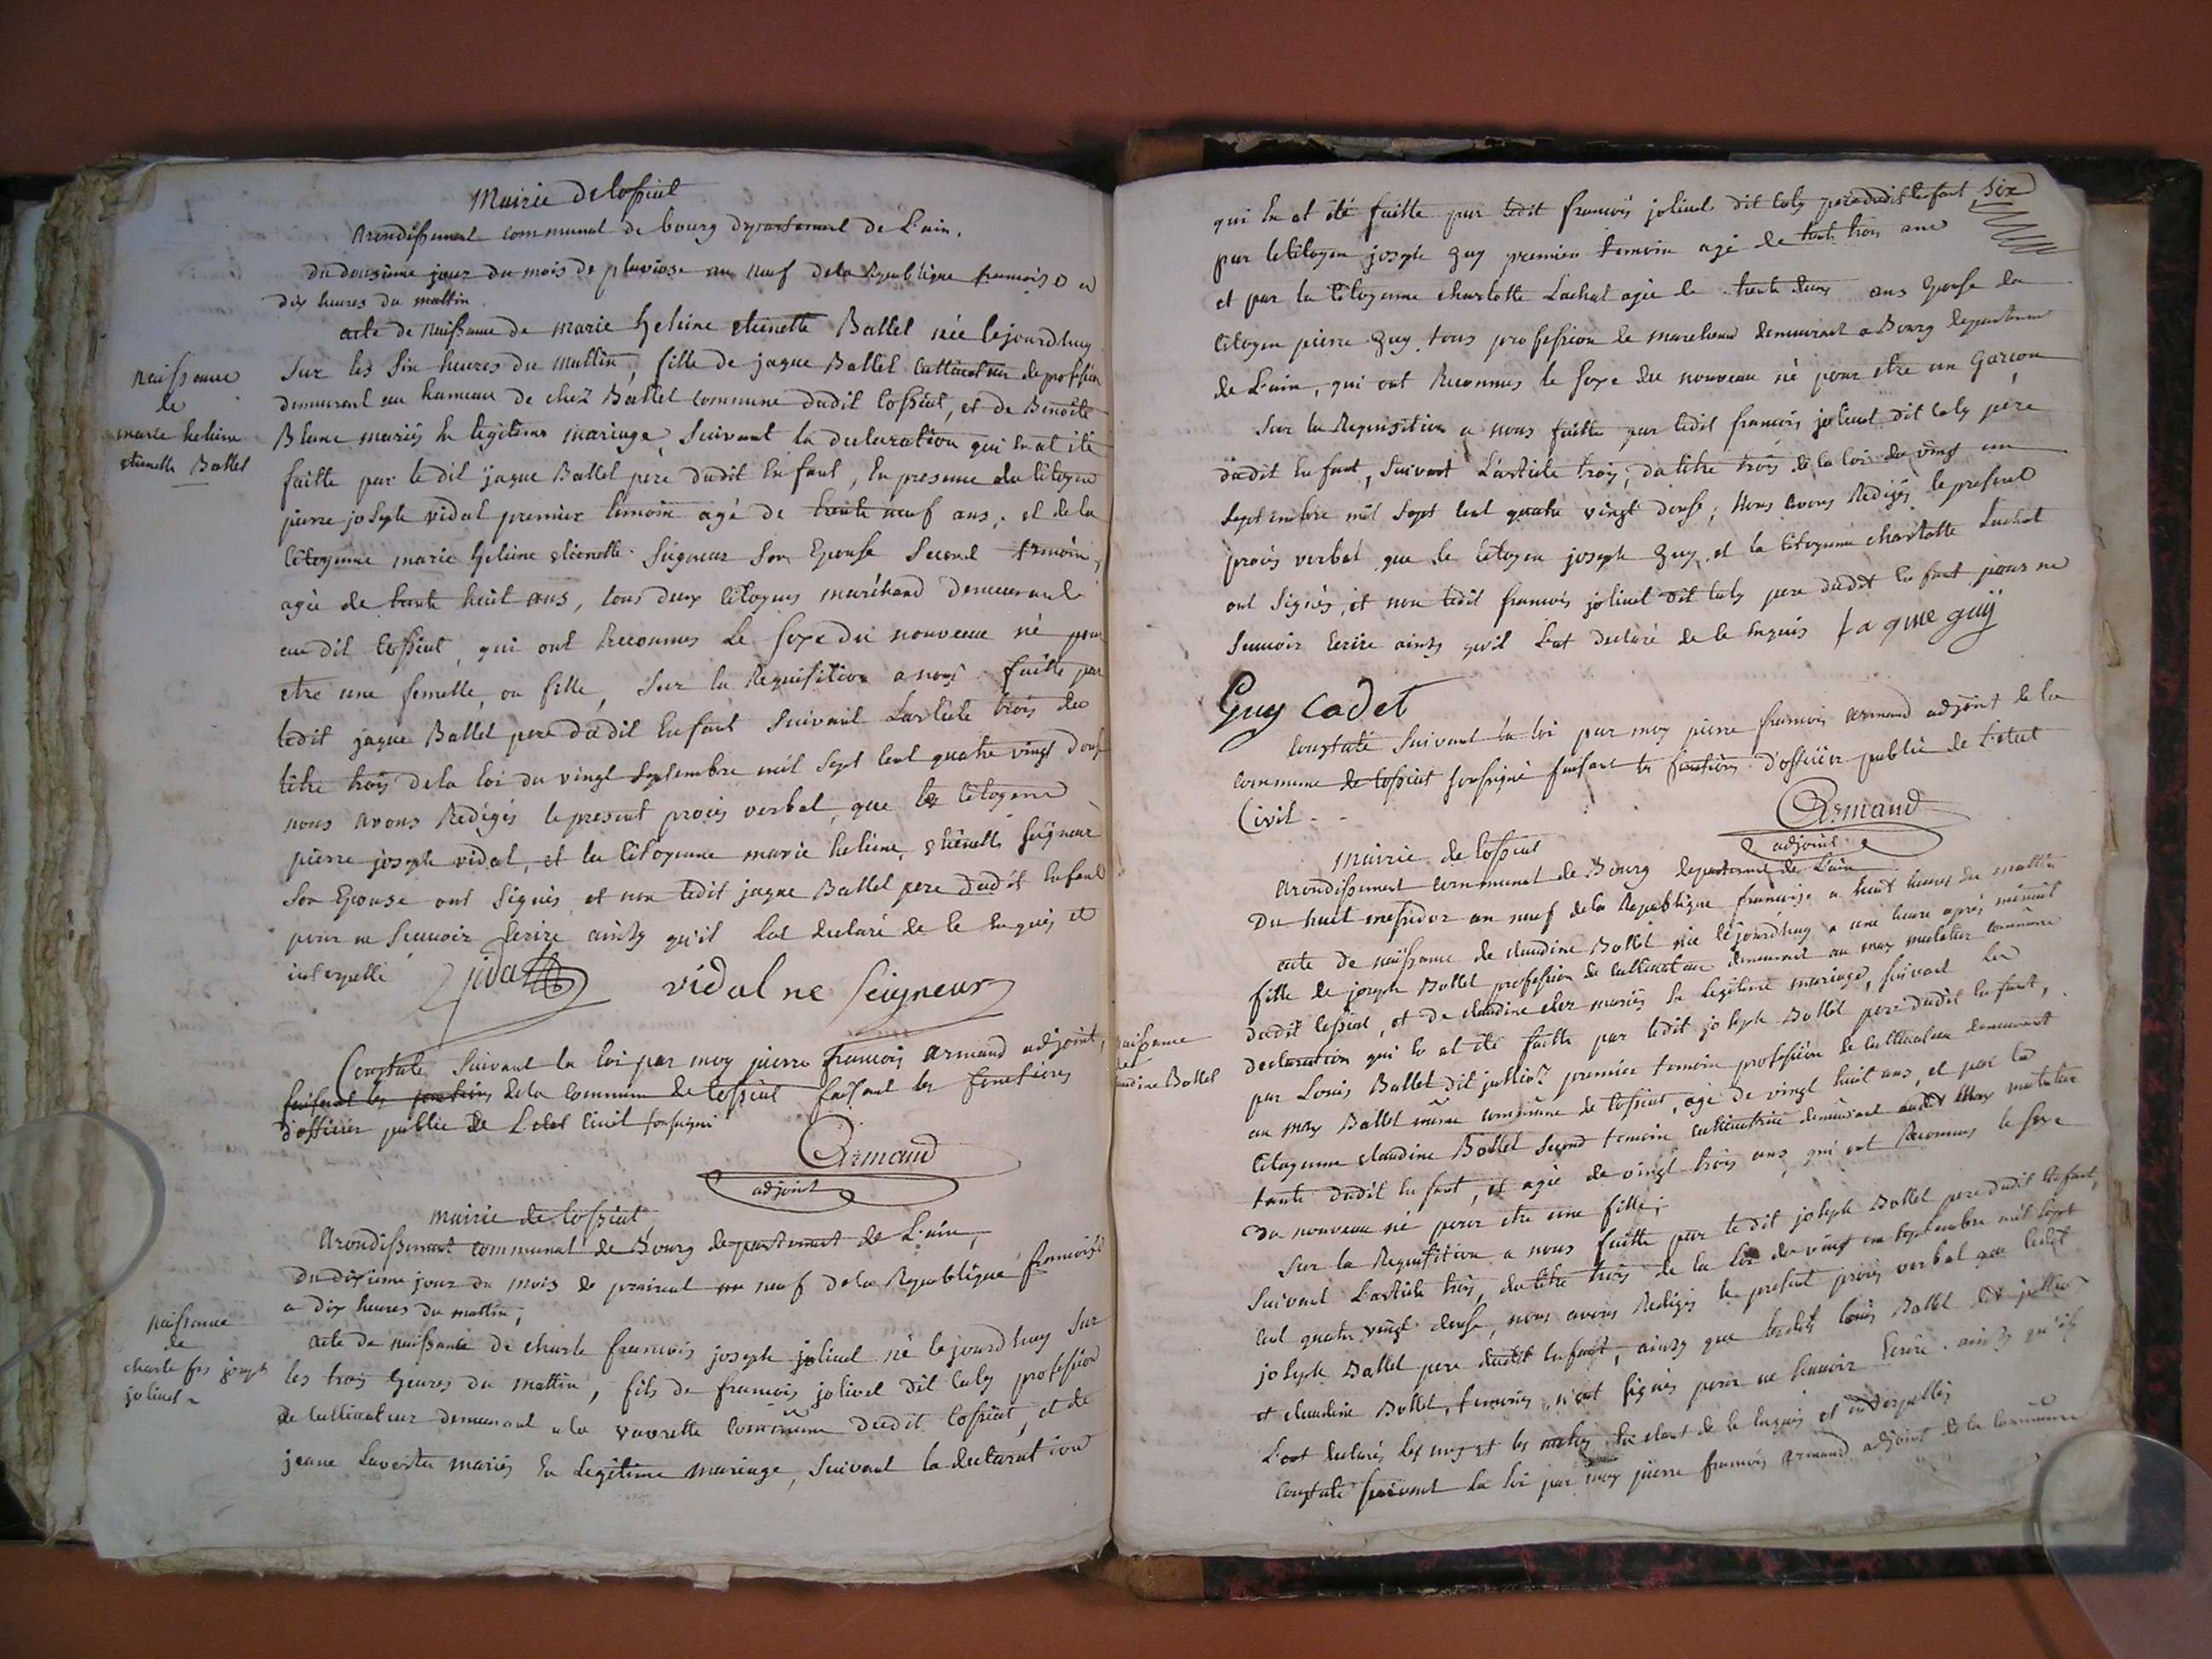 Mairie de Cossiat
Arondissement communal de bourg departement de L'ain.
du dousieme jour du mois de pluviose an neuf de la Republique francois a
dix heures du mattin.
acte de naissance de marie heleine etienette Ballet née lejourdhuy
Sur les six heures du mattin, fille de jaque Ballet Cultivateur de profession
demeurant au hameau de chez Ballet commune dudit Cossiat, et de Benoite
Blanc mariés En legitime mariage, Suivant la declaration qui En at été
faitte par le dit jaque Ballet pere dudit Enfant, En presence du Citoyen
pierre joseph vidal premier temoin agé de trente neuf ans, et de la
Citoyenne marie heleine etienette Seigneur Son Epouse Second temoin,
agée de trente huit ans, tous deux Citoyens marchand demeurant
au dit Cossiat, qui ont Reconnus Le sexe du nouveau né pour
etre une femelle, ou fille, Sur la Requisition a nous faitte par
ledit jaque Ballet pere dudit Enfant Suivant L'article trois du
titre trois de la loi du vingt Septembre mil Sept Cent quatre vingt douse
nous avons Redigés le present procés verbal, que le Citoyen
pierre joseph vidal, et la Citoyenne marie heleine etienette seigneur
Son Epouse ont Signés et non ledit jaque Ballet pere dudit Enfant
pour ne Scavoir Ecrire ainsy qu'il L'at declaré de Ce Enquis et
interpellé vidal vidal ne seigneur
Naissance
de
marie heleine
etienette Ballet
Constaté Suivant la loi par moy pierre francois armand adjoint,
faisant les fonctions de la Commune de Cossiat faisant les fonctions
d'officier public de L'etat Civil soussigné
Armand
adjoint
mairie de Cossiat
Arondissement communal de Bourg departement de L'ain,
du dixieme jour du mois de prairial an neuf de la Republique francoise
a dix heures du mattin,
Acte de naissance de charle francois joseph jolivet né lejourdhuy Sur
les trois heures du mattin, fils de francois jolivet dit Caly profession
de Cultivateur demeurant a la vavrette Commune dudit Cossiat, et de
jeane mariés En Legitime mariage, Suivant la declaration
Naissance
de
charle frs joseph
jolivet
qui En at été faitte par ledit francois jolivet dit Caly pere dudit Enfant six
par le Citoyen joseph guy premier temoin agé de trente trois ans
et par la Citoyenne charlotte Lachat agée de trente deux ans Epouse du
Citoyen pierre guy tous profession de marchand demeurant a Bourg departement
de L'ain, qui ont Reconnus le sexe du nouveau né pour etre un Garçon
Sur la Requisition a nous faitte par ledit francois jolivet dit Caly pere
dudit Enfant, Suivant L'article trois, du titre trois de la loi du vingt un
Septembre mil Sept Cent quatre vingt douse, Nous avons Redigés le present
procés verbal que le Citoyen joseph guy et la Citoyenne charlotte Lachat
ont Signés, et non ledit francois jolivet dit Caly pere dudit Enfant pour ne
Scavoir Ecrire ainsy qu'il L'at declaré de Ce Enquis Jaque guÿ
Guy Cadet
Constaté Suivant la loi par moy pierre francois armand adjoint de la
commune de Cossiat soussigné faisant les fonctions d'officier public de L'etat
Civil
Armand
adjoint
Mairie de Cossiat
Arondissement communal de Bourg departement de L'ain
Du huit messidor an neuf de la Republique francoise a huit heures du mattin
acte de naissance de claudine Ballet née lejourdhuy a une heure aprés minuit
fille de joseph Ballet profession de Cultivateur demeurant au max commune
dudit Cossiat, et de claudine mariés En legitime mariage, suivant La
declaration qui En at été faitte par ledit joseph Ballet pere dudit Enfant,
par Louis Ballet dit premier temoin profession de Cultivateur demeurant
au max Ballet même commune de Cossiat, agé de vingt huit ans, et par la
Citoyenne claudine Ballet Second temoin cultivatrice demeurant audit Max
tante dudit Enfant, et agée de vingt trois ans, qui ont Reconnus le sexe
Du nouveau né pour etre une fille;
Sur la Requisition a nous faitte par le dit joseph Ballet pere dudit Enfant,
Suivant L'article trois, du titre trois de la loi du vingt un septembre mil Sept
Cent quatre vingt douse, nous avons Redigés le present procés verbal que ledit
joseph Ballet pere dudit Enfant, ainsy que Louis Ballet dit
et claudine Ballet, temoins, n'ont signés pour ne Scavoir Ecrire ainsy qu'ils
L'ont declarés de Ce Enquis et interpellés
Constaté suivant la loi par moy pierre francois armand adjoint de la Commune
Naissance
de
claudine Ballet